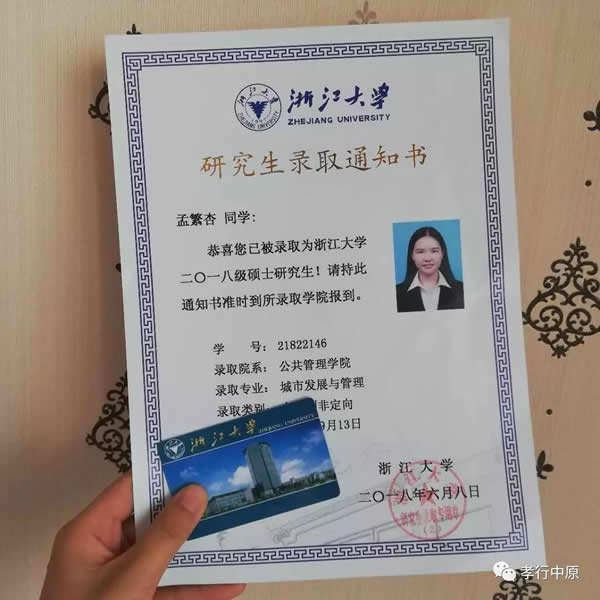 浙江大学
ZHEJIANG UNIVERSITY
研究生录取通知书
孟繁杏 同学:
恭喜您已被录取为浙江大学
二〇一八级硕士研究生！请持此
通知书准时到所录取学院报到。
学 号: 21822146
录取院系: 公共管理学院
录取专业: 城市发展与管理
录取类别: 非定向
9月13日
浙江大学 ZHEJIANG UNIVERSITY
浙江大学
二〇一八年六月八日
孝行中原